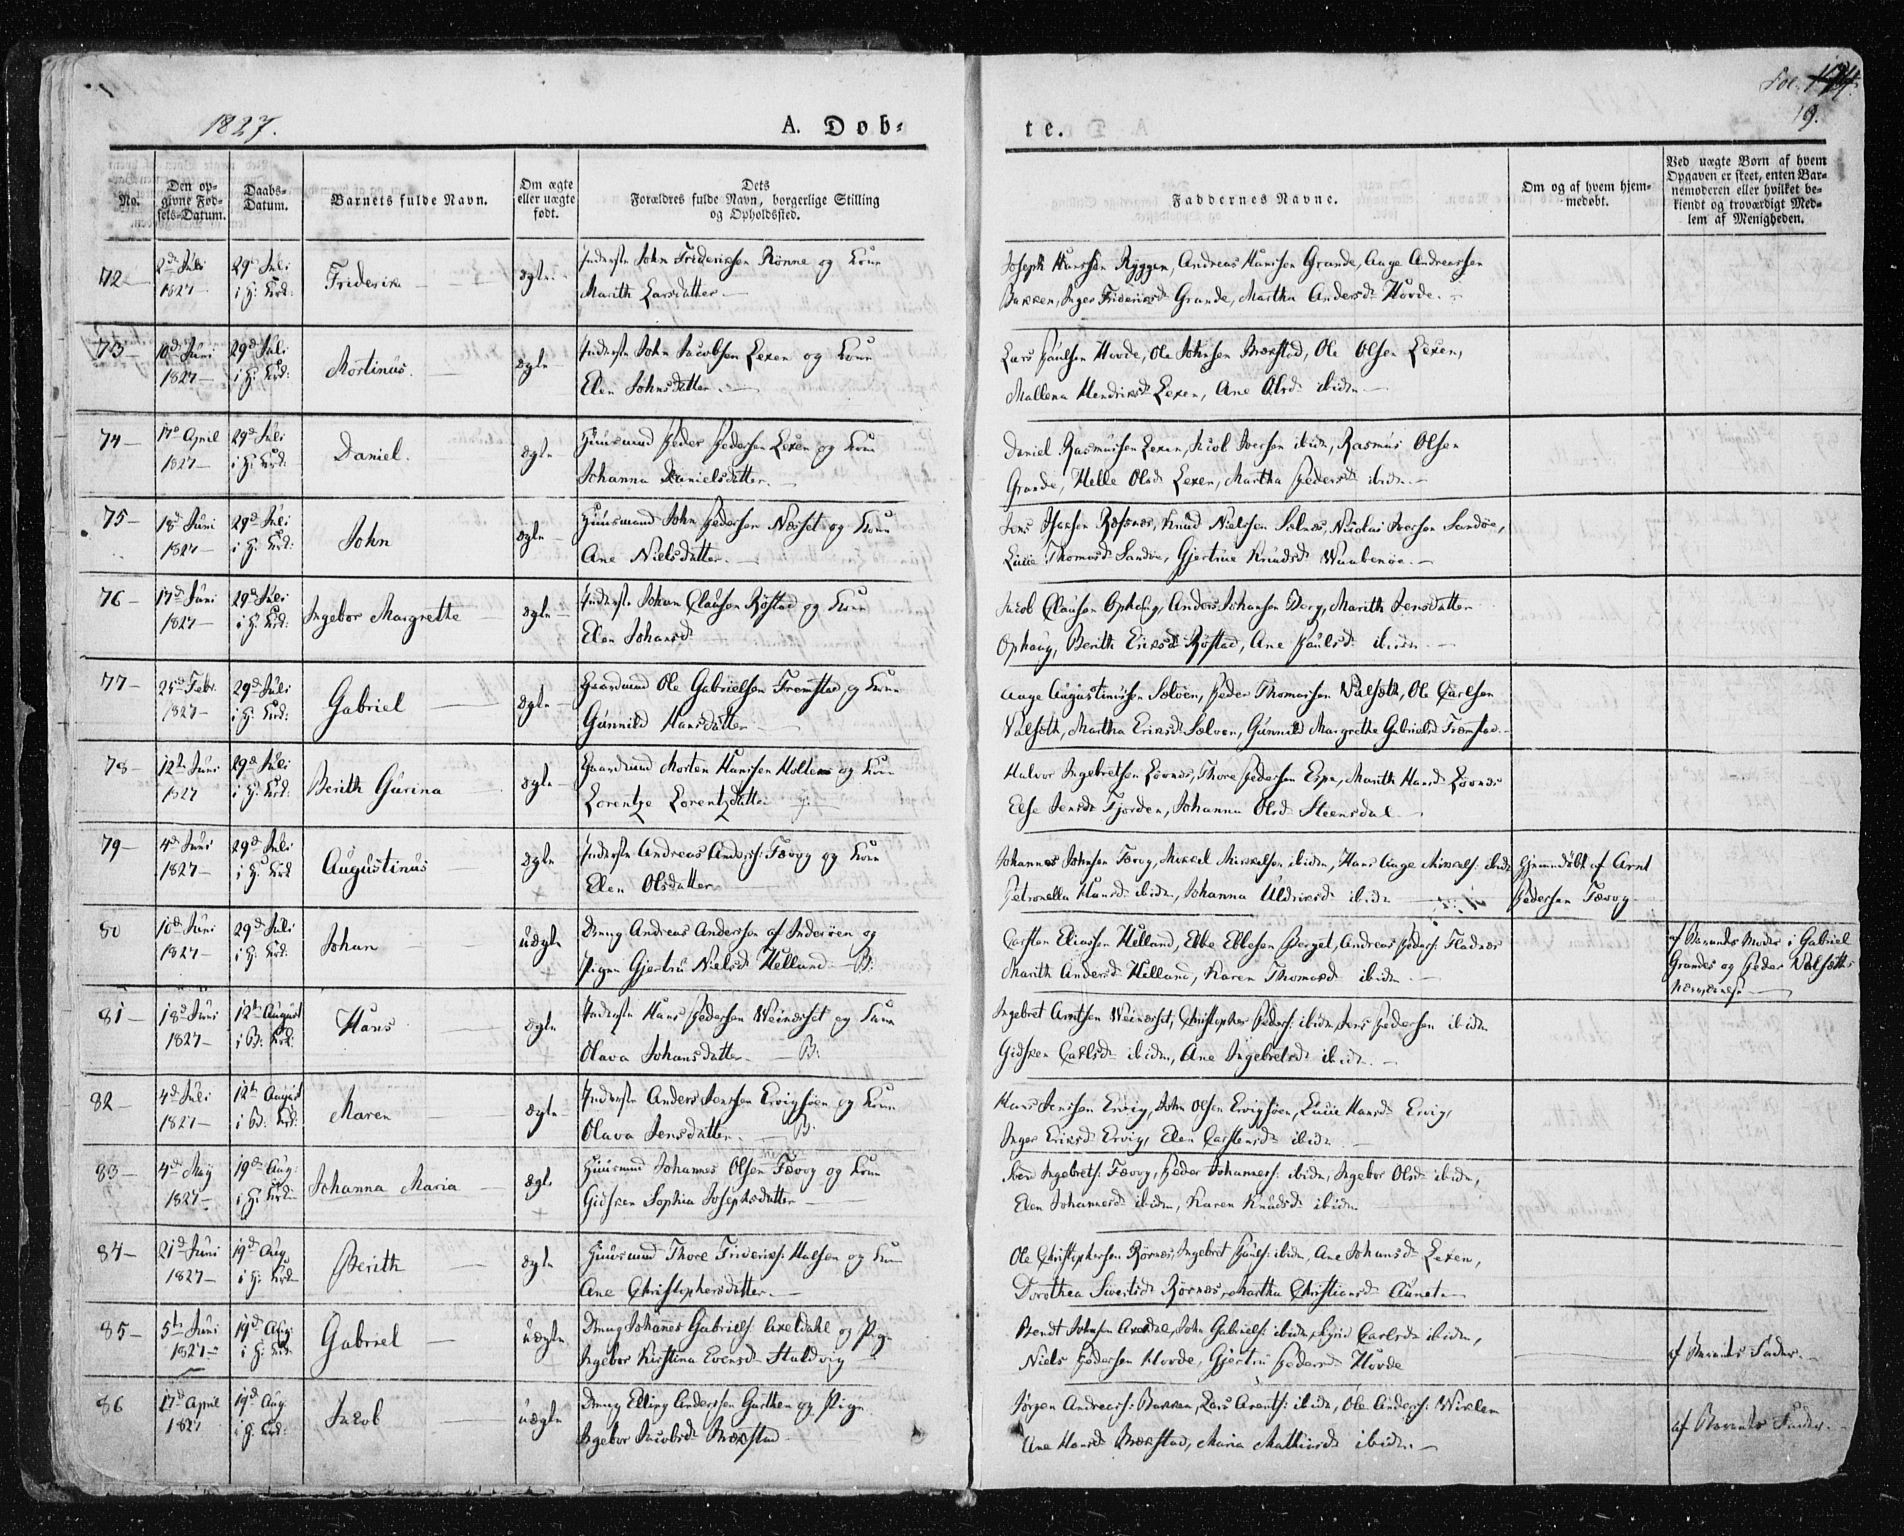 1827.
A. Døb=
te.
Fol. 174.
19.
No.
Den op=
givne Fød=
sels=Datum.
Daabs=
Datum.
Barnets fulde Navn.
Om ægte
eller uægte
født.
Dets
Forældres fulde Navn, borgerlige Stilling
og Opholdssted.
Faddernes Navne.
Om og af hvem hjem=
medøbt.
Ved uægte Børn af hvem
Opgaven er skeet, enten Bar=
nemoderen eller hvilket be=
kiendt og troværdigt Med=
lem af Menigheden.
72
2d Juli
1827
29d Juli
i H: Krk:
Friderik
ægte
Inderste John Frideriksen Rönne og Kone
Marith Larsdatter
Joseph Hanssen Ryggen, Andreas Hanssen Grande, Aage Andreassen
Bakken, Inger Frideriksd. Grande, Martha Andersd. Hovde.
73
10d Juni
1827
29d Juli
i H: Krk:
Mortinus.
ægte
Inderste John Jacobsen Lexen og Kone
Elen Johnsdatter.
Lars Paulsen Hovde, Ole Johnsen Brækstad, Ole Olsen Lexen,
Mallena Hendriksd. Lexen, Ane Olsd. ibidem
74
17d April
1827
29d Juli
i H: Krk:
Daniel.
ægte
Huusmand Peder Pedersen Lexen og Kone
Johanna Danielsdatter.
Daniel Rasmussen Lexen, Jacob Iversen ibidem, Rasmus Olsen
Grande, Helle Olsd. Lexen, Martha Pedersd. ibidem
75
18d Juni
1827
29d Juli
i H: Krk:
John
ægte
Huusmand John Pedersen Næsset og Kone
Ane Nielsdatter.
Jens Isaksen Ræsnæs, Knud Nielsen Selnæs, Nicolai Iversen Sandøe,
Lucie Thomasd. Sandøe, Gjertrue Knudsd.
76
17d Juni
1827
29d Juli
i H: Krk:
Ingebor Margrethe
ægte
Inderste Johan Clausen Røstad og Kone
Elen Johansd.
Jacob Clausen Ophaug, Anders Johansen Berg, Marith Jensdatter
Ophaug, Berith Eriksd. Røstad, Ane Paulsd. ibidem
77
25d Febr.
1827
29d Juli
i H: Krk:
Gabriel
ægte
Gaardmand Ole Gabrielsen Fremstad og Kone
Gunnild Hansdatter
Aage Augustinussen Selven, Peder Thomassen Valsøth, Ole Carlsen
Valsøth, Martha Eriksd. Selven, Gunnild Margrethe Gabrielsd. Fremstad
78
12te Juni
1827
29d Juli
i H: Krk:
Berith Gurina
ægte
Gaardmand Morten Hanssen Holten og Kone
Lorentze Lorentzdatter
Halvor Ingebretsen Løvnæs, Thore Pedersen Espn, Marith Hansd. Lövnæs
Else Jensd. Fjorden, Johanna Olsd. Steensdal
79
4d Juni
1827
29d Juli
i H: Krk
Augustinus
ægte
Inderste Andreas Anders: Tævog og Kone
Elen Olsdatter
Johannes Johnsen Tævog, Mikkel Mikkelsen ibidem, Hans Aage Mikkels: ibidem
Petronella Hansd. ibidem, Johanna Uldriksd. ibidem
Hjemmedøbt af Arnt
Pedersen Tævog
80
10d Juni
1827
29d Juli
i H: Krk:
Johan
uægte
Dreng Andreas Anderssen af Inderøen og
Pigen Gjertru Nielsd. Helland. B:
Carsten Eliassen Helland, Ebbe Ebbesen Berget, Andreas Peders: Fladnæs
Marith Andersd. Helland, Karen Thomasd. ibidem
af Barnets Moder i Gabriel
Grandes og Peder Valsøths
Nærværelse
81
18d Juni
1827
12te August
i B: Krk:
Hans
ægte
Inderste Hans Pedersen Weinæsset og Kone
Olava Johansdatter. B:
Ingebret Arntsen Weinæsset, Christopher Peders: ibidem, Jens Pedersen ibidem
Gidsken Carlsd. ibidem, Ane Ingebretsd. ibidem
82
4d Juli
1827
12te August
i B: Krk:
Maren
ægte
Inderste Anders Jenssen Ervigsøen og Kone
Olava Jensdatter. B:
Hans Jenssen Ervig, John Olsen Ervigsøen, Lucie Hansd. Ervig,
Inger Eriksd. Ervig, Elen Carstensd. ibidem
83
4de May
1827
19d Aug:
i H: Krk
Johanna Maria
ægte
Huusmand Johannes Olsen Tævog og Kone
Gidsken Sophia Josephsdatter
Sven Ingebrets: Tævog, Peder Johanness: ibidem, Ingebor Olsd. ibidem,
Elen Johannesd. ibidem, Karen Knudsd. ibidem
84
21d Juni
1827
19d Aug.
i H: Krk
Berith
ægte
Huusmand Thore Frideriks: Halsen og Kone
Ane Christophersdatter.
Ole Christophersen Rönnes, Ingebret Pauls: ibidem, Ane Johansd. Lexen,
Dorothea Sivertsd. Rönnes, Martha Christiansd. Aunet
85
5te Juni
1827
19d Aug:
i H: Krk
Gabriel
uægte
Dreng Johannes Gabriels: Axeldahl og Pige
Ingebor Kirstina Evensd. Staldvig
Bendt Johnsen Axedal, John Gabriels: ibidem, Sirid Carlsd. ibidem,
Niels Pedersen Hovde, Gjertru Pedersd. Hovde
af Barnets Fader.
86
17d April
1827
19d Aug.
i H: Krk:
Jacob
uægte
Dreng Elling Anderssen Garthen og Pige
Ingebor Jacobsd. Brækstad
Jörgen Andreass: Bakken, Lars Arents: ibidem, Ole Anders: Wiklem
Ane Hansd. Brækstad, Maria Mathiasd. ibidem.
af Barnets Fader.